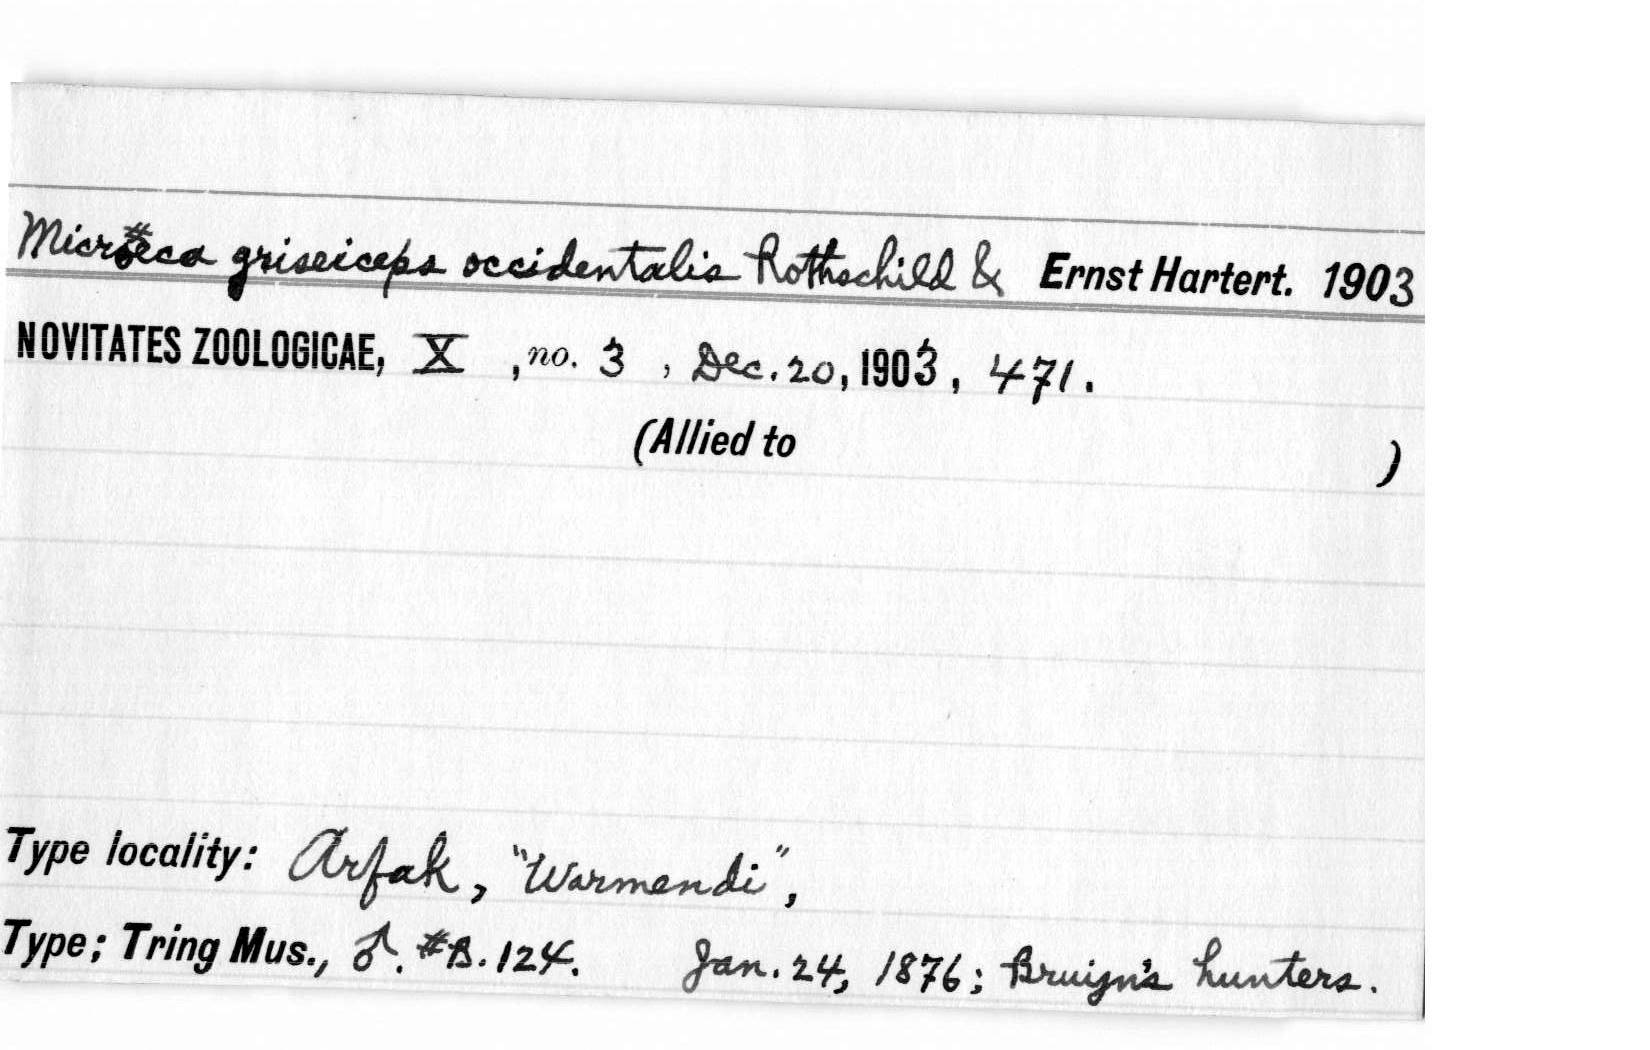 Microeca griseiceps occidentalis Rothschild & Ernst Hartert. 1903
NOVITATES ZOOLOGICAE, X, no. 3, Dec. 20, 1903, 471.
(Allied to )
Type locality: Arfak, "Warmendi",
Type; Tring Mus., ♂. #B. 124. Jan. 24, 1876; Bruijn's hunters.